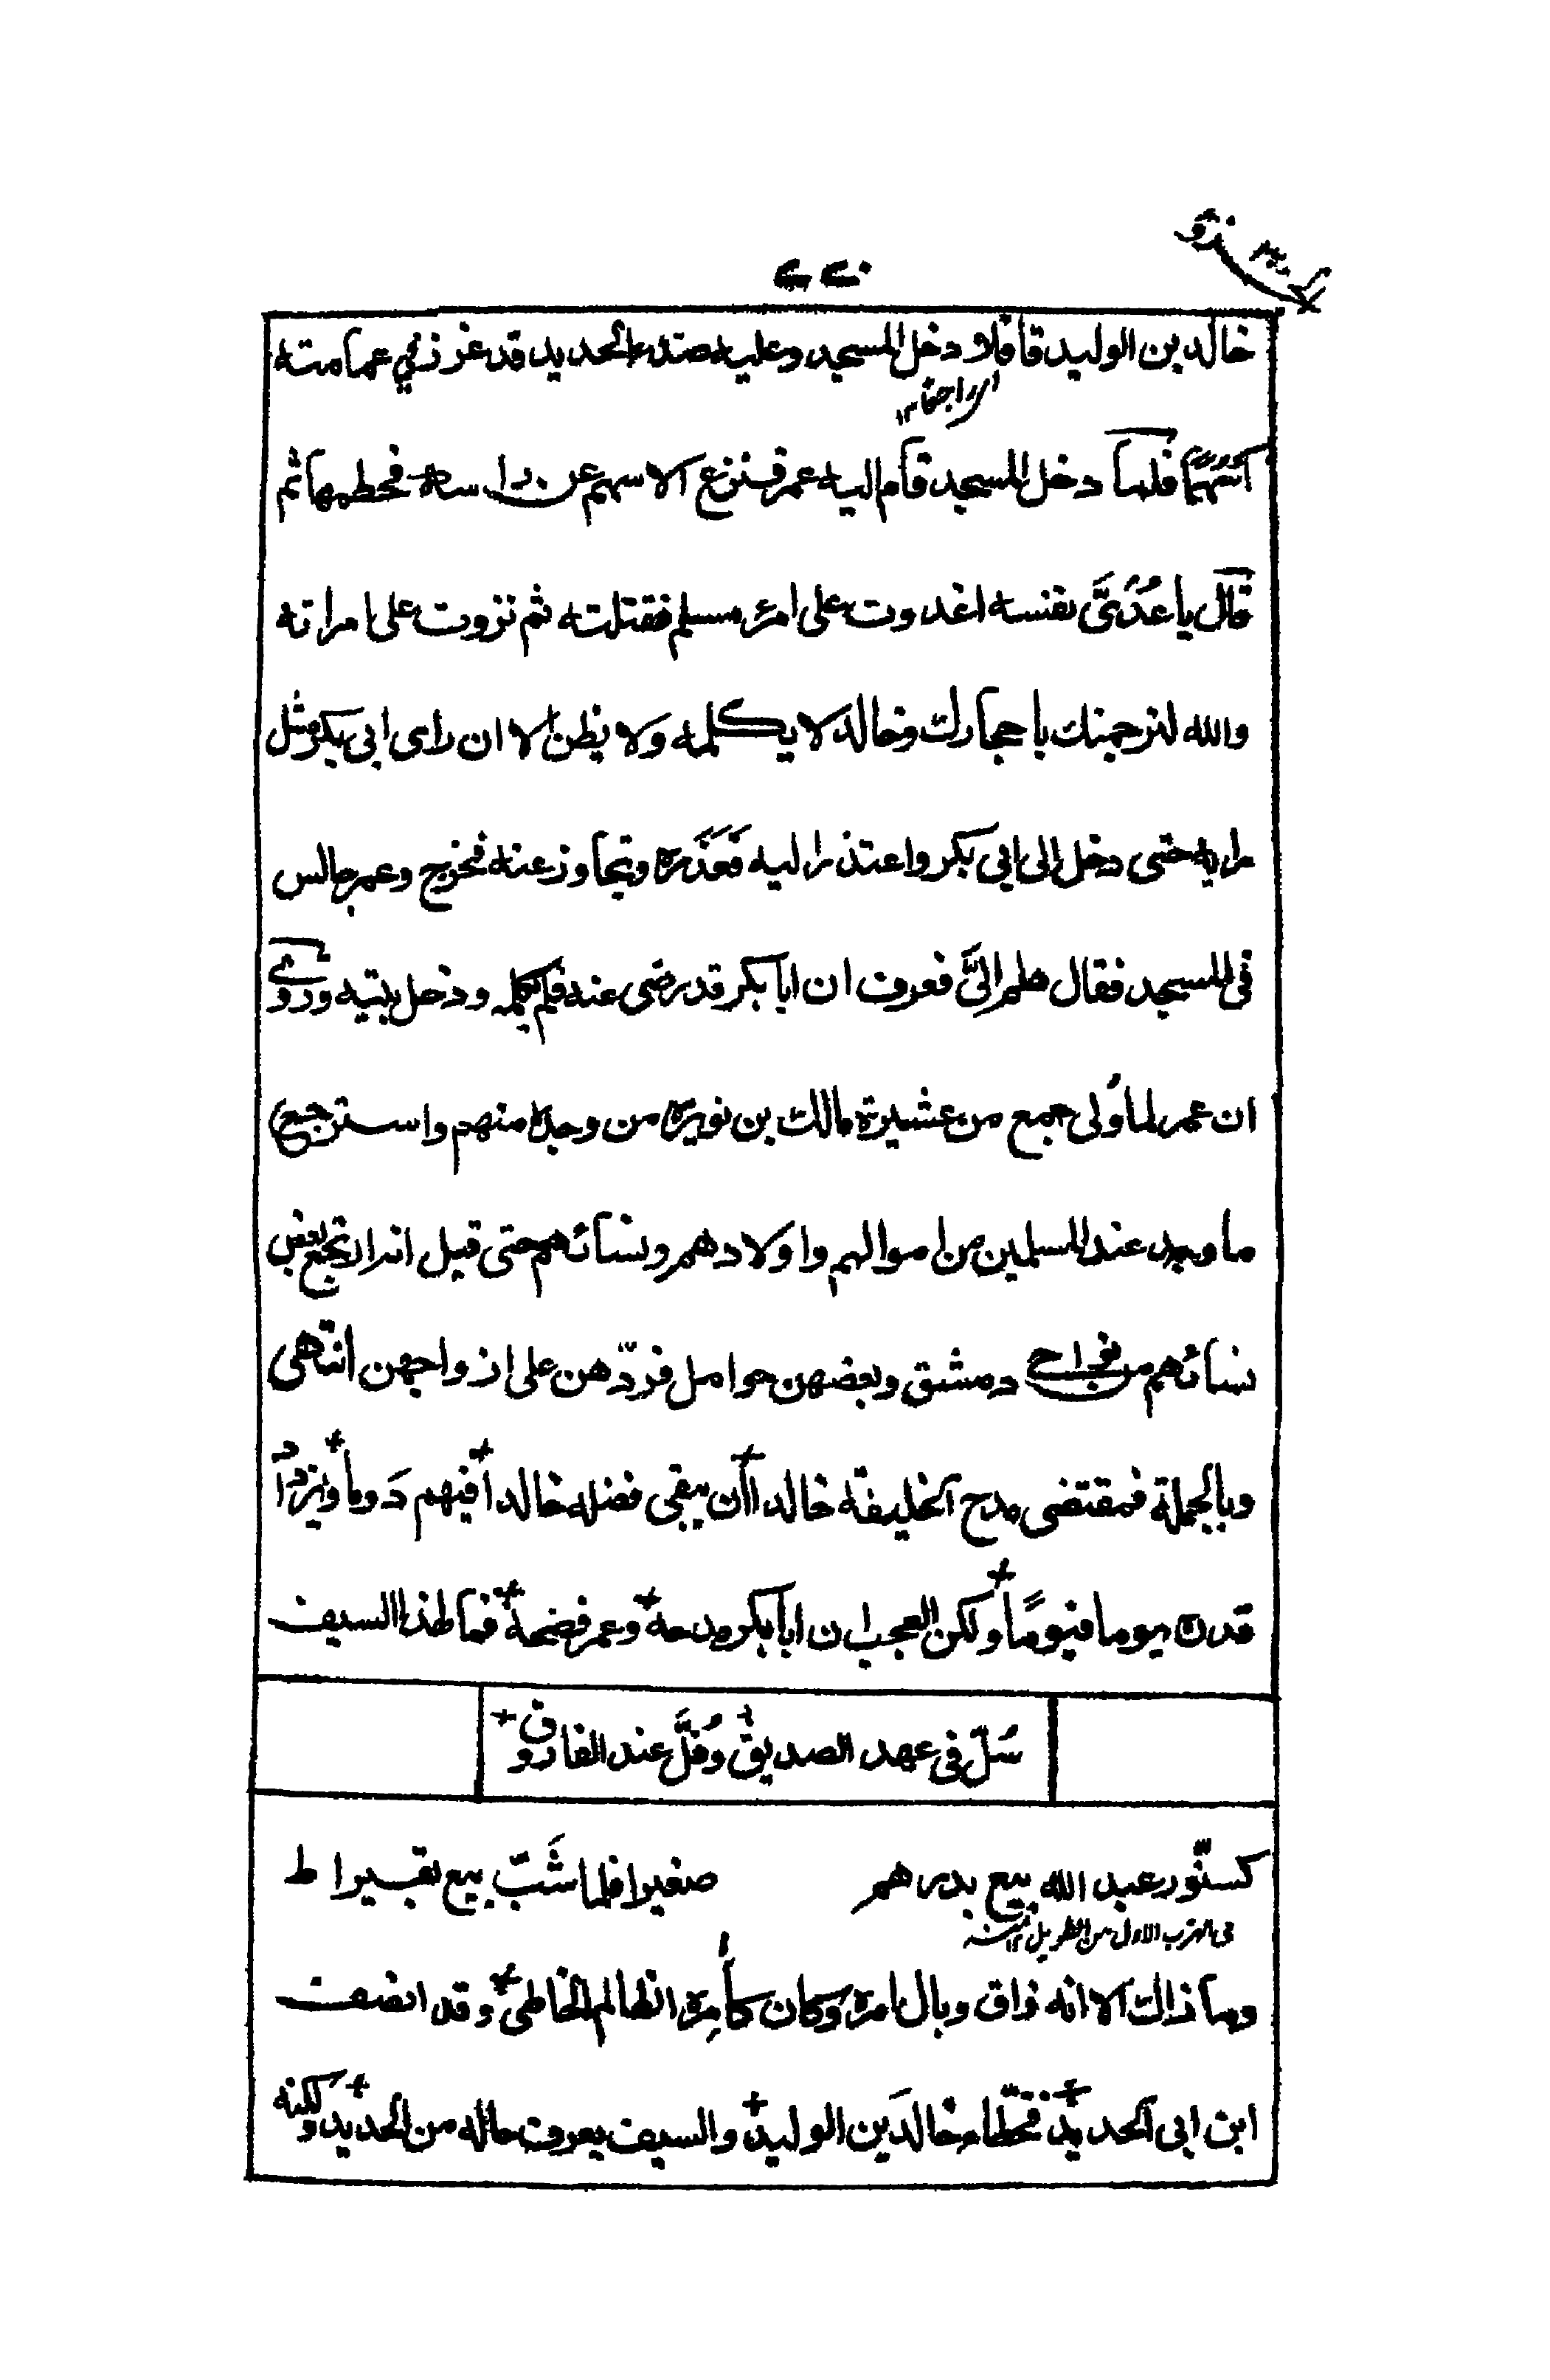 خالد بن الوليد قافلا و دخل المسجد وعليه صدء الحديد قد غرز في عمامته
اي راجعا ١٢
اَسْهُمًا فلما دخل المسجد قام اليه عمر فنزع الاسهم عن راسه فحطمها ثم
قال يا عُدَىَّ نفسه اغدوت على امرئ مسلم فقتلته ثم نزوت على امراته
والله لنرجمنك باحجارك وخالد لا يكلمه ولا يظن الا ان راى ابى بكر مثل
رايه حتى دخل الى ابي بكر واعتذر اليه فَعَذَرَه وتجاوز عنه فخرج وعمر جالس
في المسجد فقال هلم الىَّ فعرف ان ابا بكر قد رضى عنه فلم يكلمه ودخل بيته وروى
ان عمر لما وُلى جمع من عشيرة مالك بن نويرة من وجد منهم واسترجع
ما وجد عند المسلمين من اموالهم واولادهم ونسائهم حتى قيل انه ارتجع بعض
نسائهم من دمشق وبعضهن حوامل فردّهن على ازواجهن انتهى
وبالجملة فمقتضى مدح الخليفة خالدا أن يبقى فضله خالدا فيهم دَوما ويزداد
قدره يوما فيومًا ولكن العجب ان ابا بكر مدحه وعمر فضحه فما هذا السيف
سُلّ في عهد الصديق وفُلَّ عند الفاروق
كسنّور عبد الله بيع بدرهم صغيرا فلما شَبّ بيع بقيراط
في الضرب الاول من الطويل ١٢ منه
وما ذاك الا انه ذاق وبال امره وكان كأمِره الظالم الخاطئ وقد انصف
ابن ابى الحديد فخطّاء خالد بن الوليد والسيف يعرف ماله من الحديد ولكنه